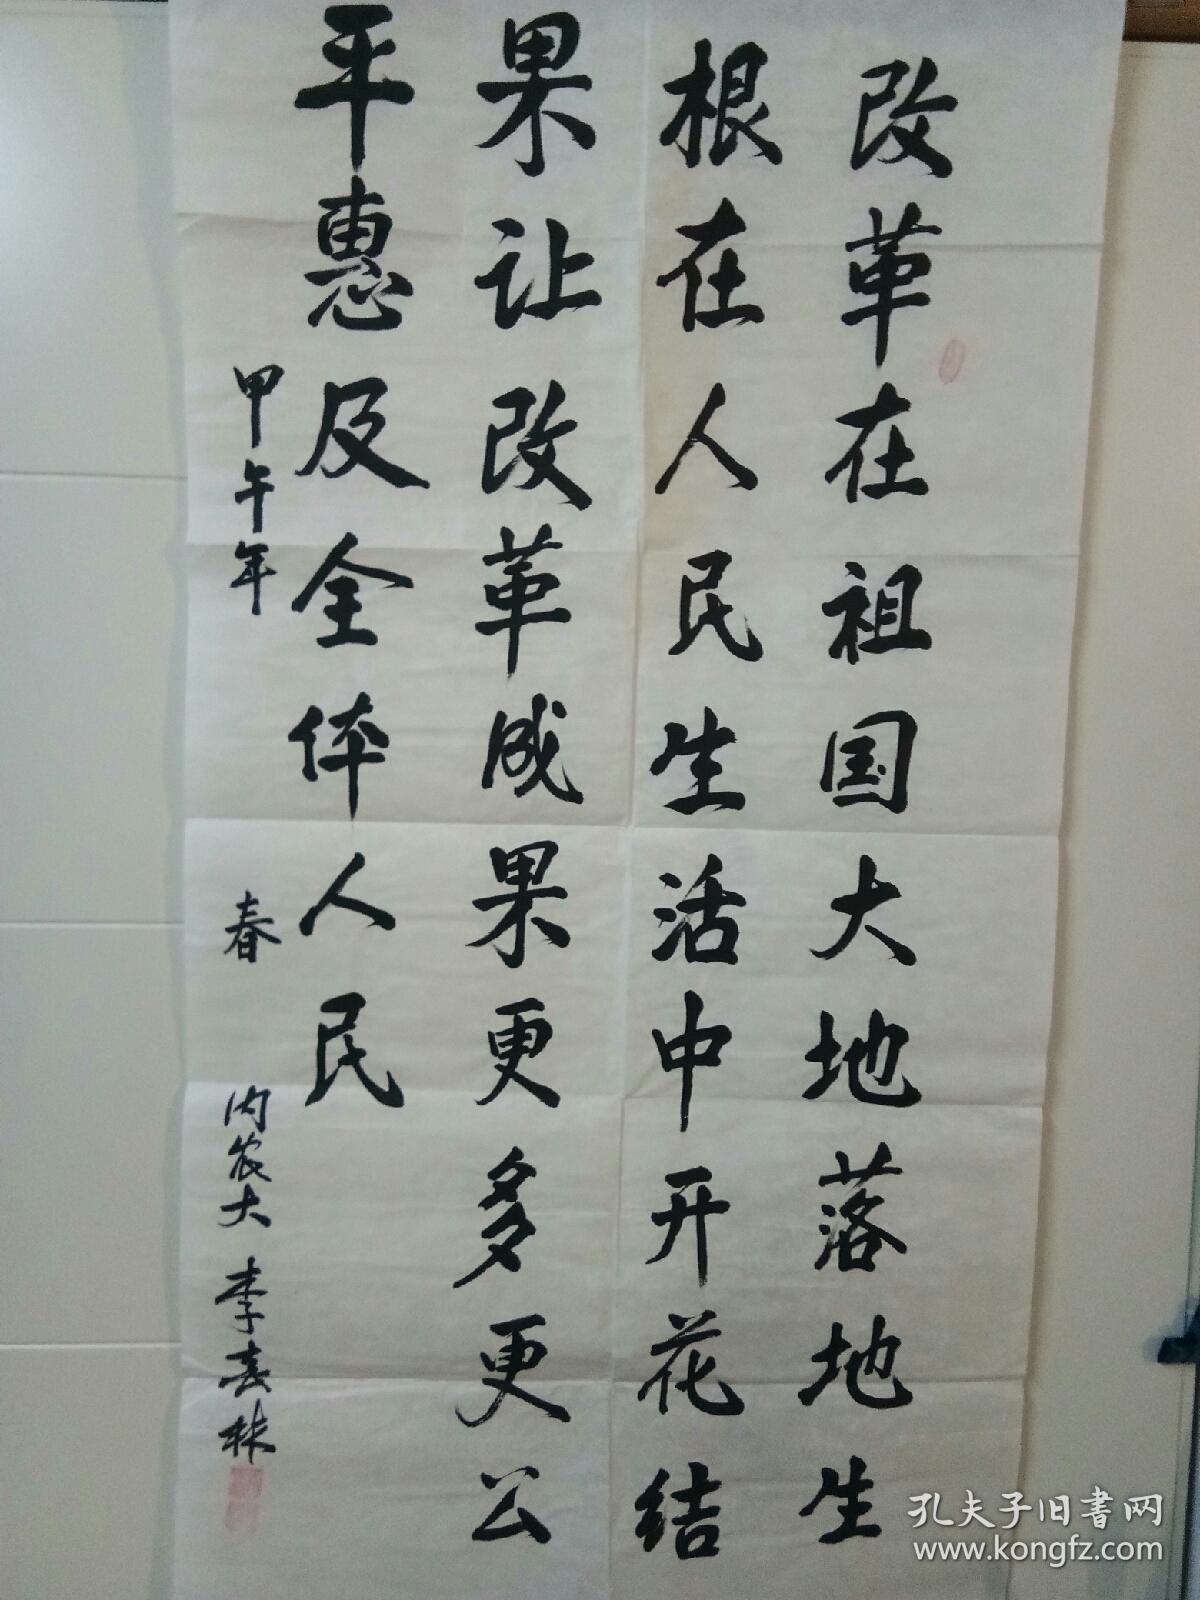 改革在祖国大地落地生
根在人民生活中开花结
果让改革成果更多更公
平惠及全体人民
甲午年 春 内农大 李喜林
孔夫子旧书网
www.kongfz.com